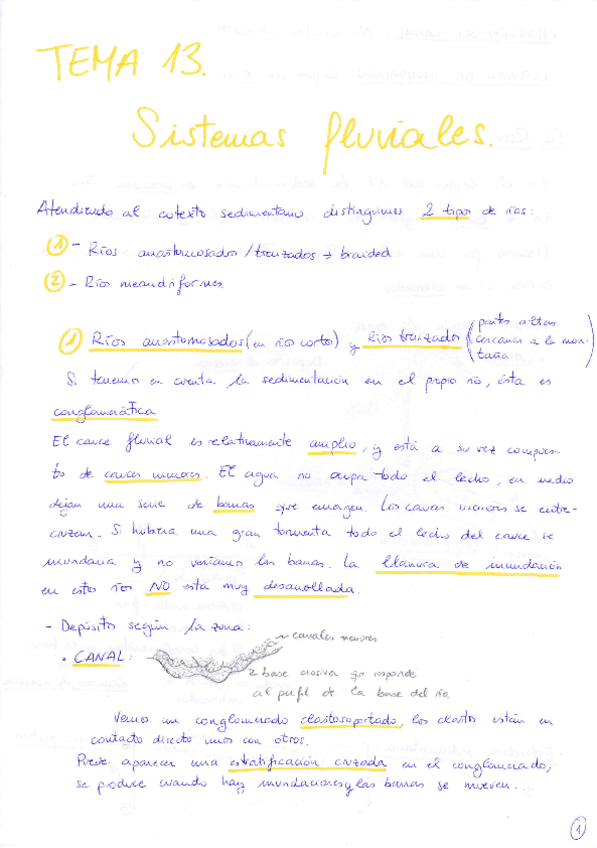 TEMA 13.
Sistemas fluviales.
Atendiendo al cotexto sedimentario distinguimos 2 tipos de ríos:
1 - Ríos anastomosados / trenzados → braided
2 - Ríos meandriformes
1 Ríos anastomosados (en ríos cortos) y Ríos trenzados (partes altas cercanas a la montaña)
Si tenemos en cuenta la sedimentación en el propio río, ésta es
conglomerática
El cauce fluvial es relativamente amplio, y está a su vez compues-
to de cauces menores. El agua no ocupa todo el lecho, en medio
dejan una serie de barras que emergen. Los cauces menores se entre-
cruzan. Si hubiera una gran tormenta todo el lecho del cauce se
inundaría y no veríamos las barras. La llanura de inundación
en estos ríos NO está muy desarrollada.
- Depósitos según la zona:
• CANAL:
canales menores
base erosiva q responde
al perfil de la base del río.
Vemos un conglomerado clastosoportado, los clastos están en
contacto directo unos con otros.
Puede aparecer una estratificación cruzada en el conglomerado,
se produce cuando hay inundaciones y las barras se mueven.
1